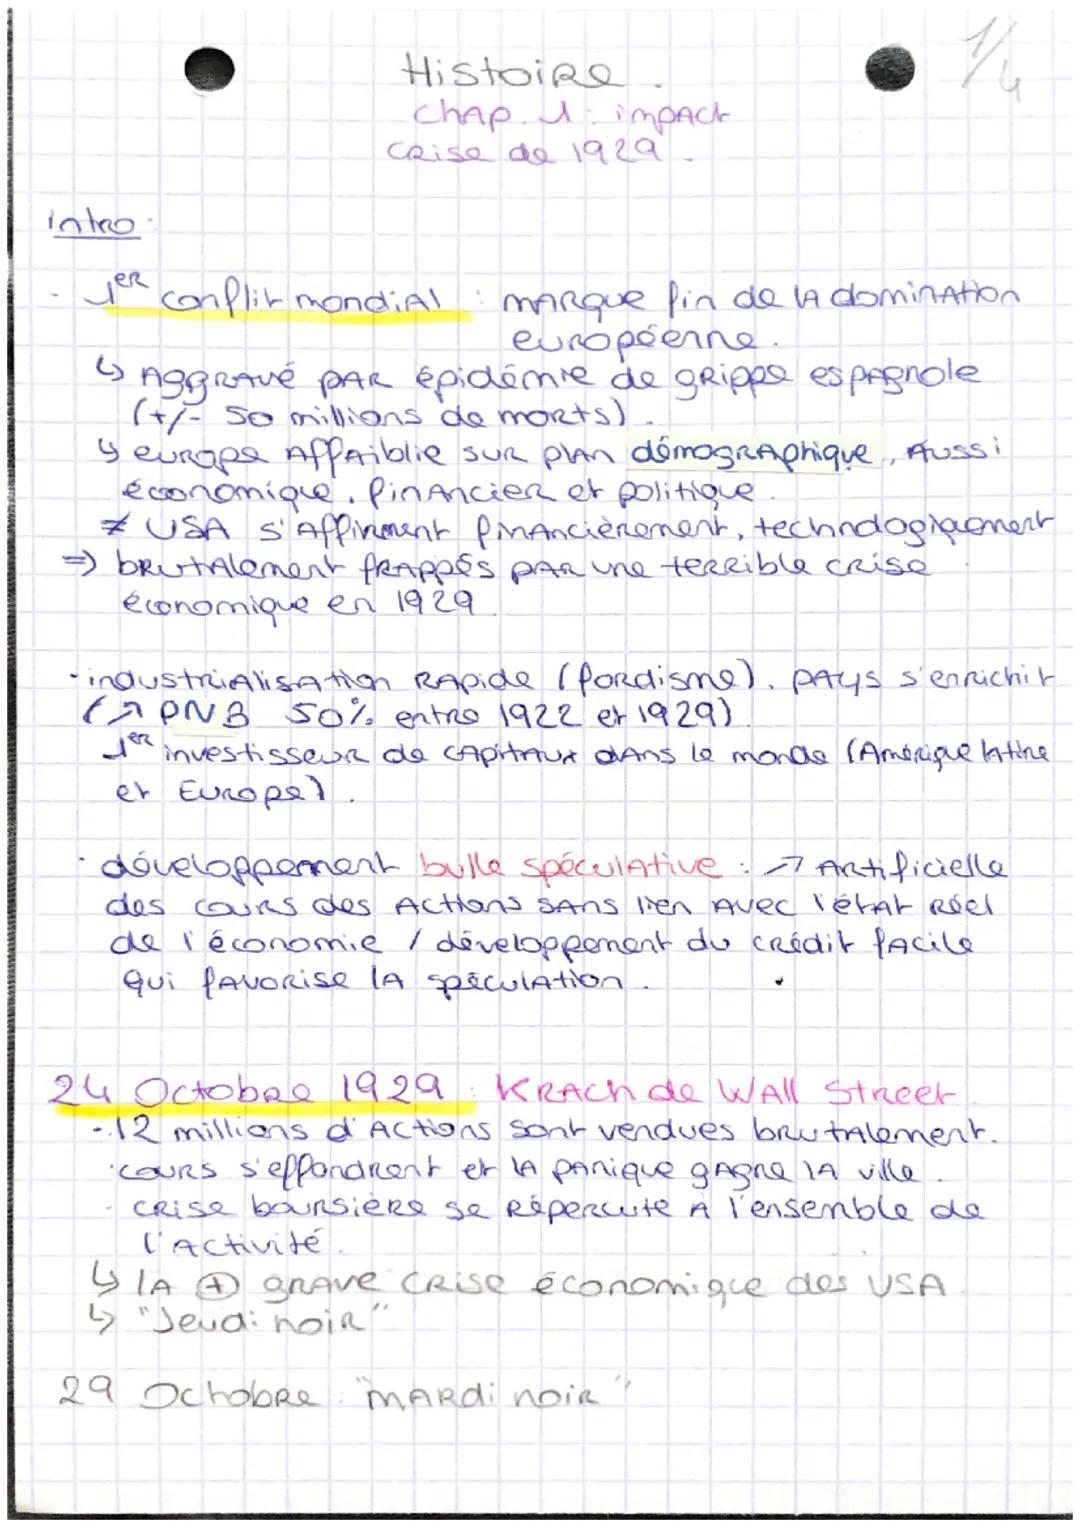 1/4
Histoire.
Chap. 1 : impact
crise de 1929.
intro :
- 1er conflit mondial : marque fin de la domination
européenne.
↳ Aggravé par épidémie de grippe espagnole
(+/- 50 millions de morts).
↳ europe affaiblie sur plan démographique, aussi
économique, financier et politique.
≠ USA s'affirment financièrement, technologiquement
⇒ brutalement frappés par une terrible crise
économique en 1929.
- industrialisation rapide (fordisme). pays s'enrichit
(↗ PNB 50% entre 1922 et 1929)
1er investisseur de capitaux dans le monde (Amérique latine
et Europe).
· développement bulle spéculative : ↗ Artificielle
des cours des actions sans lien avec l'état réel
de l'économie / développement du crédit facile
qui favorise la spéculation.
24 Octobre 1929 : Krach de Wall Street
- 12 millions d'actions sont vendues brutalement.
· cours s'effondrent et la panique gagne la ville.
- crise boursière se répercute à l'ensemble de
l'activité.
↳ la ⊕ grave crise économique des USA
↳ "Jeudi noir"
29 Octobre : "mardi noir"